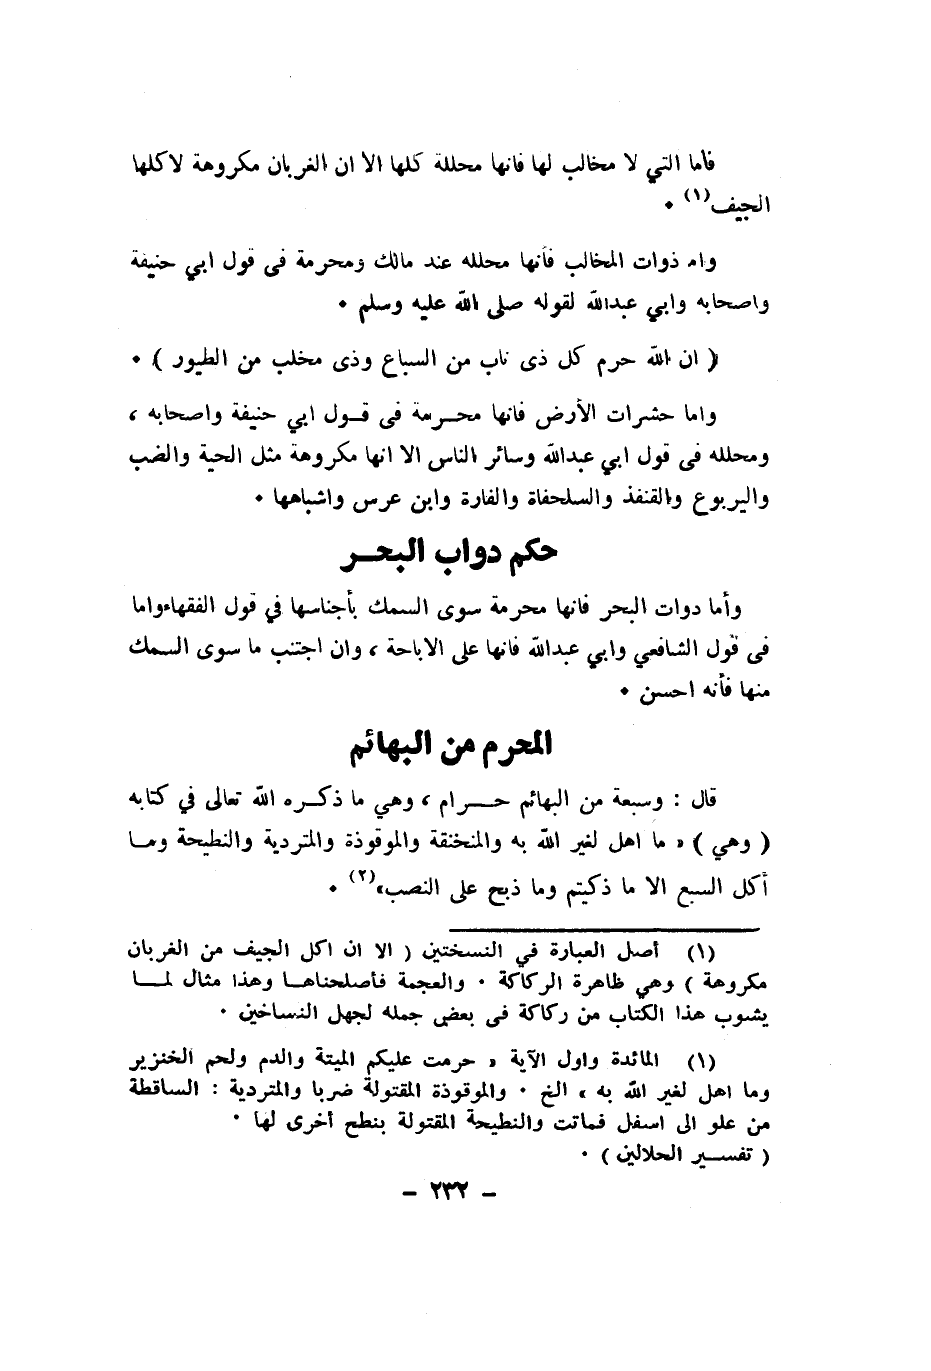 فأما التي لا مخالب لها فانها محللة كلها الا ان الغربان مكروهة لاكلها
الجيف(١) ٠
واما ذوات المخالب فأنها محلله عند مالك ومحرمة فى قول ابي حنيفة
واصحابه وابي عبدالله لقوله صلى الله عليه وسلم ٠
( ان الله حرم كل ذى ناب من السباع وذى مخلب من الطيور ) ٠
واما حشرات الأرض فانها محـرمة فى قـول ابي حنيفة واصحابه ،
ومحلله فى قول ابي عبدالله وسائر الناس الا انها مكروهة مثل الحية والضب
واليربوع والقنفذ والسلحفاة والفارة وابن عرس واشباهها ٠
حكم دواب البحـر
وأما دوات البحر فانها محرمة سوى السمك بأجناسها في قول الفقهاءواما
فى قول الشافعي وابي عبدالله فانها على الاباحة ، وان اجتنب ما سوى السمك
منها فأنه احسن ٠
المحرم من البهائم
قال : وسبعة من البهائم حـــرام ، وهي ما ذكـره الله تعالى في كتابه
( وهي ) « ما اهل لغير الله به والمنخنقة والموقوذة والمتردية والنطيحة ومـا
أكل السبع الا ما ذكيتم وما ذبح على النصب»(٢) ٠
(١) أصل العبارة في النسختين ( الا ان اكل الجيف من الغربان
مكروهة ) وهي ظاهرة الركاكة ٠ والعجمة فأصلحناهـا وهذا مثال لمـــا
يشوب هذا الكتاب من ركاكة فى بعض جمله لجهل النساخين ٠
(١) المائدة واول الآية « حرمت عليكم الميتة والدم ولحم الخنزير
وما اهل لغير الله به » الخ ٠ والموقوذة المقتولة ضربا والمتردية : الساقطة
من علو الى اسفل فماتت والنطيحة المقتولة بنطح أخرى لها ٠
( تفســير الحلالين ) ٠
– ٢٣٢ –